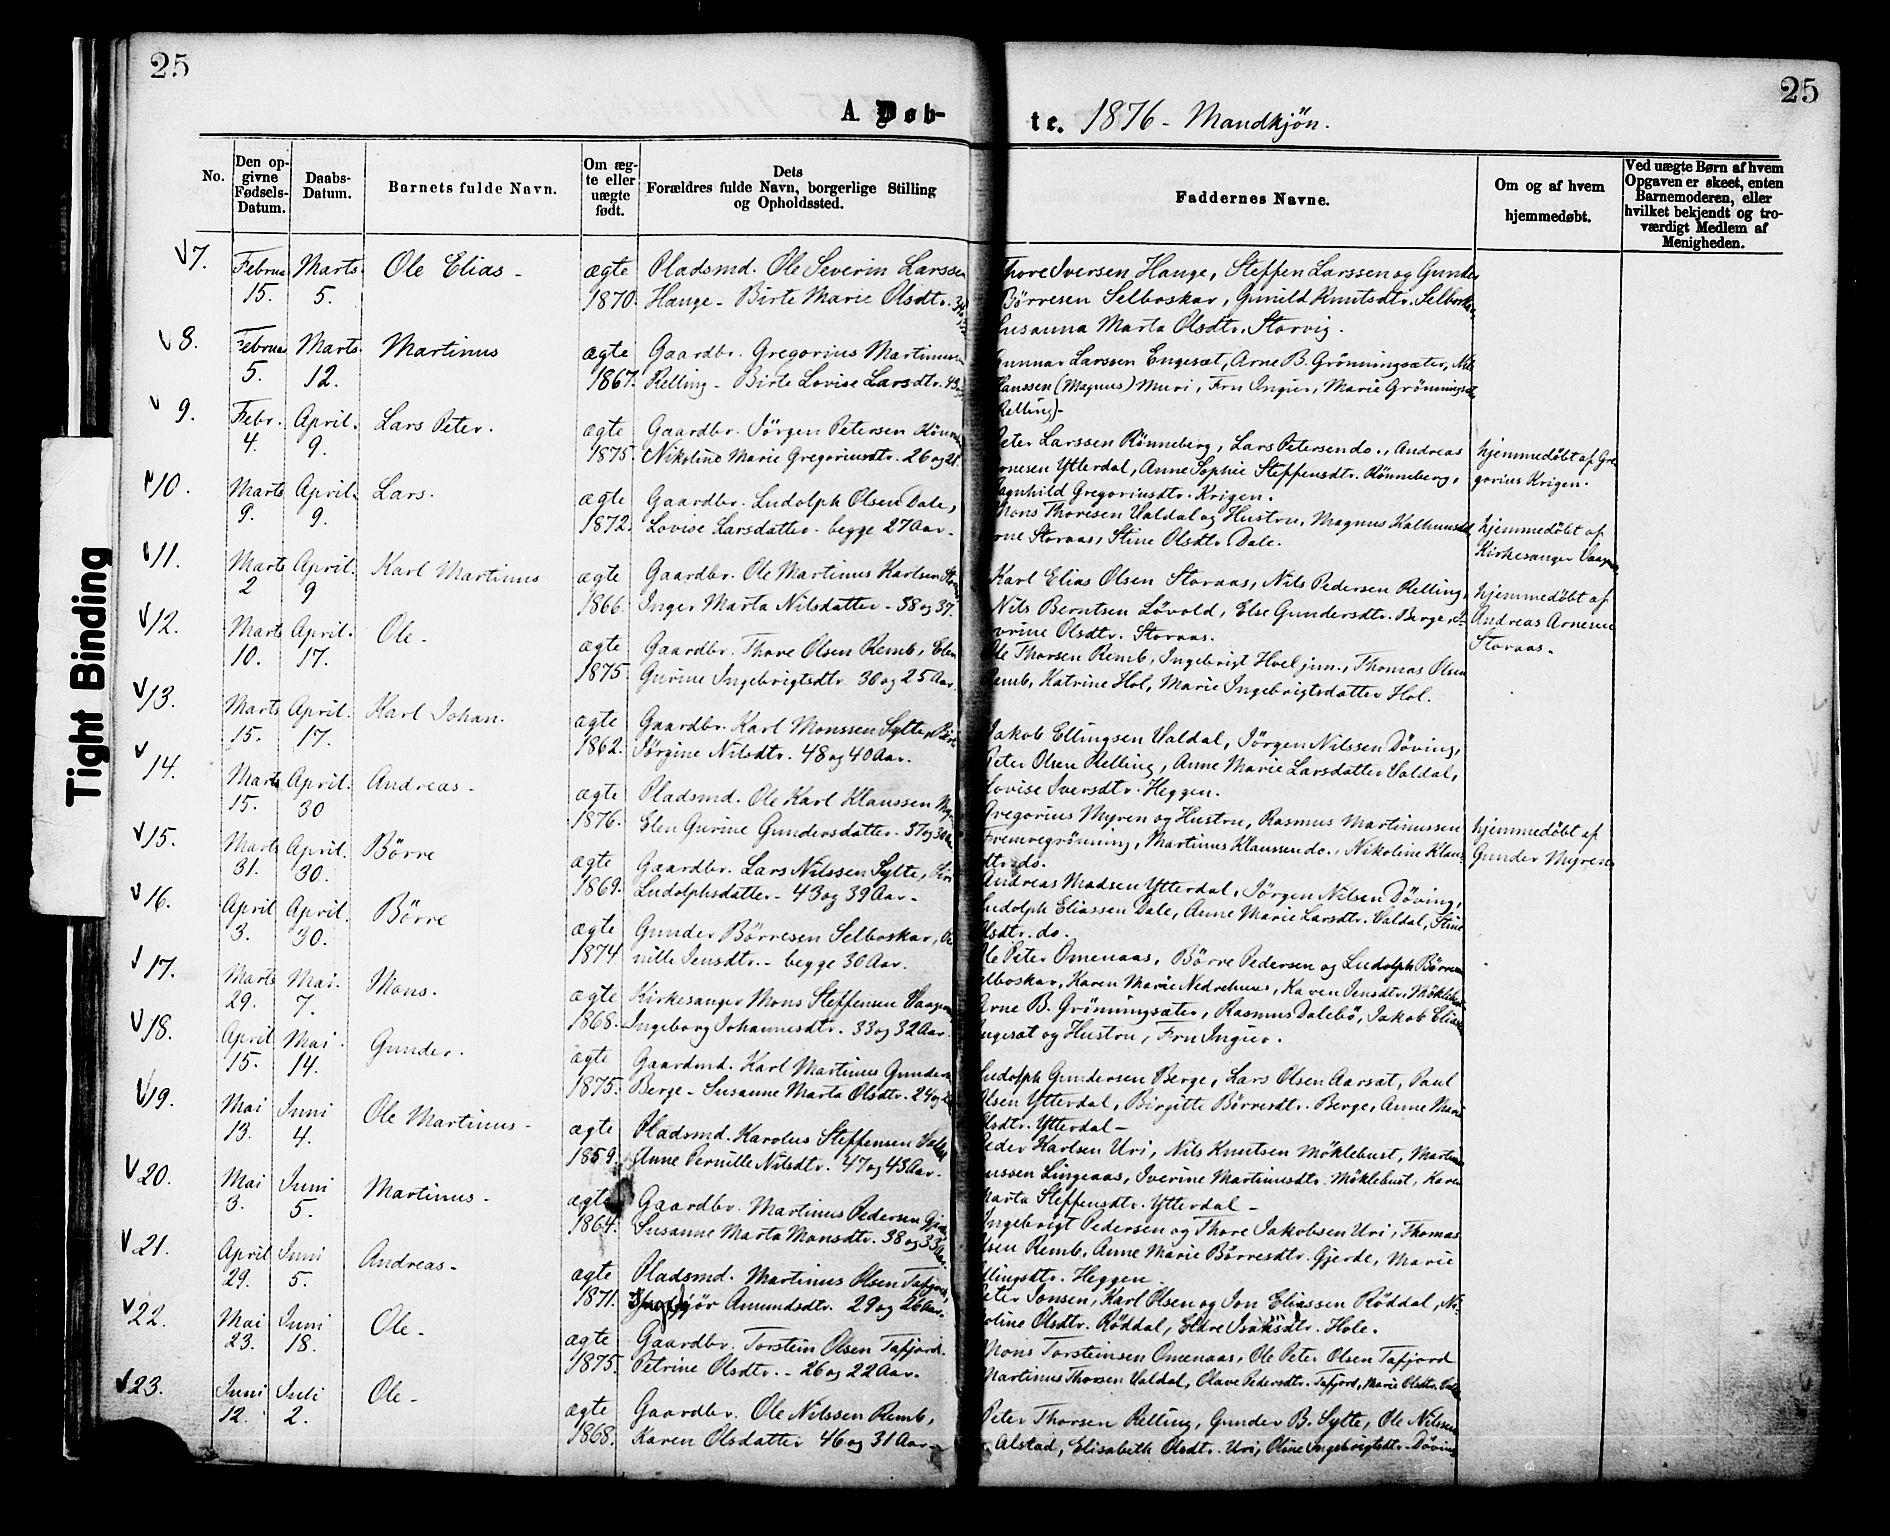 25
25
A. Døb-
te. 1876 - Mandkjön.
No.
Den opgivne Fødsels-Datum.
Daabs-Datum.
Barnets fulde Navn.
Om ægte eller uægte født.
Dets Forældres fulde Navn, borgerlige Stilling og Opholdssted.
Faddernes Navne.
Om og af hvem hjemmedøbt.
Ved uægte Børn af hvem Opgaven er skeet, enten Barnemoderen, eller hvilket bekjendt og troværdigt Medlem af Menigheden.
7. Februar Marts Ole Elias - ægte Pladsmd. Ole Severin Larssen Thore Iversen Hauge, Steffen Larssen og Gunder
15. 5. 1870. Hauge - Birte Marie Olsdtr. Börresen Selboskar, Gunild Knutsdtr. Selboskar
Susanna Marta Olsdtr. Storvig.
8. Februar Marts Martinus ægte Gaardbr. Gregorius Martinussen Gunnar Larssen Engeset, Arne B. Grönningsæter, Nils
5. 12. 1867. Relling - Birte Lovise Larsdtr. Hanssen (Magnus) Muri, Fru Ingier, Marie Grönningsæt
Relling) -
9. Febr. April. Lars Peter. ægte Gaardbr. Jörgen Petersen Rönneb Peter Larssen Rönneberg, Lars Petersen do., Andreas hjemmedöbt af Gre
4. 9. 1875. Nikoline Marie Gregoriusdtr. 26 og 21. Arnesen Ytterdal, Anne Sophie Steffensdtr. Rönneberg, gorius Krigen.
Ragnhild Gregoriusdtr. Krigen.
10. Marts April. Lars. ægte Gaardbr. Ludolph Olsen Dale, Mons Thoresen Valdal og Hustru, Magnus hjemmedöbt af
9. 9. 1872. Lovise Larsdatter - begge 27 Aar. Arne Storaas, Stine Olsdtr. Dale. Kirkesanger Vaagen
11. Marts April. Karl Martinus ægte Gaardbr. Ole Martinus Karlsen Storaas Karl Elias Olsen Storaas, Nils Pedersen Relling, hjemmedöbt af
2 9 1866. Inger Marta Nilsdatter - 38 og 37. Nils Berntsen Lövold, Else Gundersdtr. Berge, Andreas Arnesen
Olsdtr. Storaas. Storaas.
12. Marts April. Ole - ægte Gaardbr. Thore Olsen Remb, Elen Ole Thorsen Remb, Ingebrigt Hoel jun., Thomas Olsen
10. 17. 1875. Gurine Ingebrigtsdtr. 30 og 25 Aar. Remb, Katrine Hol, Marie Ingebrigtsdatter Hol.
13. Marts April. Karl Johan. ægte Gaardbr. Karl Monssen Sylte, Birte Jakob Ellingsen Valdal, Jörgen Nilssen Döving,
15. 17. 1862. Jörgine Nilsdtr. 48 og 40 Aar. Peter Olsen Relling, Anne Marie Larsdatter Valdal,
Lovise Iversdtr. Heggen.
14. Marts April. Andreas - ægte Pladsmd. Ole Karl Klaussen Gregorius Myren og Hustru, Rasmus Martinussen hjemmedöbt af
15. 30 1876. Elen Gurine Gundersdatter - 37 og Fremregrönning, Martinus Klaussen do., Nikoline Klaus Gunder Myren
dtr. do.
15. Marts April. Börre ægte Gaardbr. Lars Nilssen Sylte, Siri Andreas Madsen Ytterdal, Jörgen Nilsen Döving,
31. 30. 1869. Ludolphsdatter - 43 og 39 Aar. Ludolph Eliassen Dale, Anne Marie Larsdtr. Valdal, Stine
Olsdtr. do.
16. April April. Börre ægte Gunder Börresen Selboskar, Per Ole Peter Omenaas, Börre Pedersen og Ludolph Börresen
3. 30. 1874. nille Jensdtr. - begge 30 Aar. Selboskar, Karen Marie Nedrehuus, Karen Jensdtr. Möklebust
17. Marts Mai. Mons. ægte Kirkesanger Mons Steffensen Vaagen Arne B. Grönningsæter, Rasmus Dalebö, Jakob Elias
29. 7. 1868. Ingeborg Johannesdtr. 33 og 32 Aar. Engeset og Hustru, Fru Ingier.
18. April Mai. Gunder. ægte Gaardmd. Karl Martinus Gunders Ludolph Gundersen Berge, Lars Olsen Aarsæt, Paul
15. 14. 1875. Berge - Susanne Marta Olsdtr. 24 og Olsen Ytterdal, Birgitte Börresdtr. Berge, Anne Marie
Olsdtr. Ytterdal -
19. Mai Juni Ole Martinus - ægte Pladsmd. Karolus Steffensen Valdal Peder Karlsen Uri, Nils Knutsen Möklebust, Martin
13. 4. 1859. Anne Pernille Nilsdtr. 47 og 43 Aar. ussen Lingeaas, Iverine Martinusdtr. Möklebust, Karen
Marta Steffensdtr. Ytterdal -
20. Mai Juni Martinus - ægte Gaardbr. Martinus Pedersen Gjerde Ingebrigt Pedersen og Thore Jakobsen Uri, Thomas
3. 5. 1864. Susanne Marta Monsdtr. 38 og 33 Aar. Olsen Remb, Anne Marie Börresdtr. Gjerde, Marie
Ellingsdtr. Heggen
21. April Juni Andreas - ægte Pladsmd. Martinus Olsen Tafjord, Peter Jonsen, Karl Olsen og Jon Eliassen Röddal, Ni
29. 5. 1871. Amundsdtr. 29 og 26 Aar. koline Olsdtr. Röddal, Eldre Isaksdtr. Hole.
22. Mai Juni Ole - ægte Gaardbr. Torstein Olsen Tafjord. Mons Torsteinsen Omenaas, Ole Peter Olsen Tafjord
23. 18. 1875. Petrine Olsdtr. - 26 og 22 Aar. Martinus Thorsen Valdal, Olave Pedersdtr. Tafjord, Marie Olsdtr.
23. Juni Juli Ole - ægte Gaardbr. Ole Nilssen Remb, Peter Thorsen Relling, Gunder B. Sylte, Ole Nilssen
12. 2. 1868. Karen Olsdatter 46 og 31 Aar - Alstad, Elisabeth Olsdtr. Uri, Oline Ingebrigtsdtr. Döving
Tight Binding